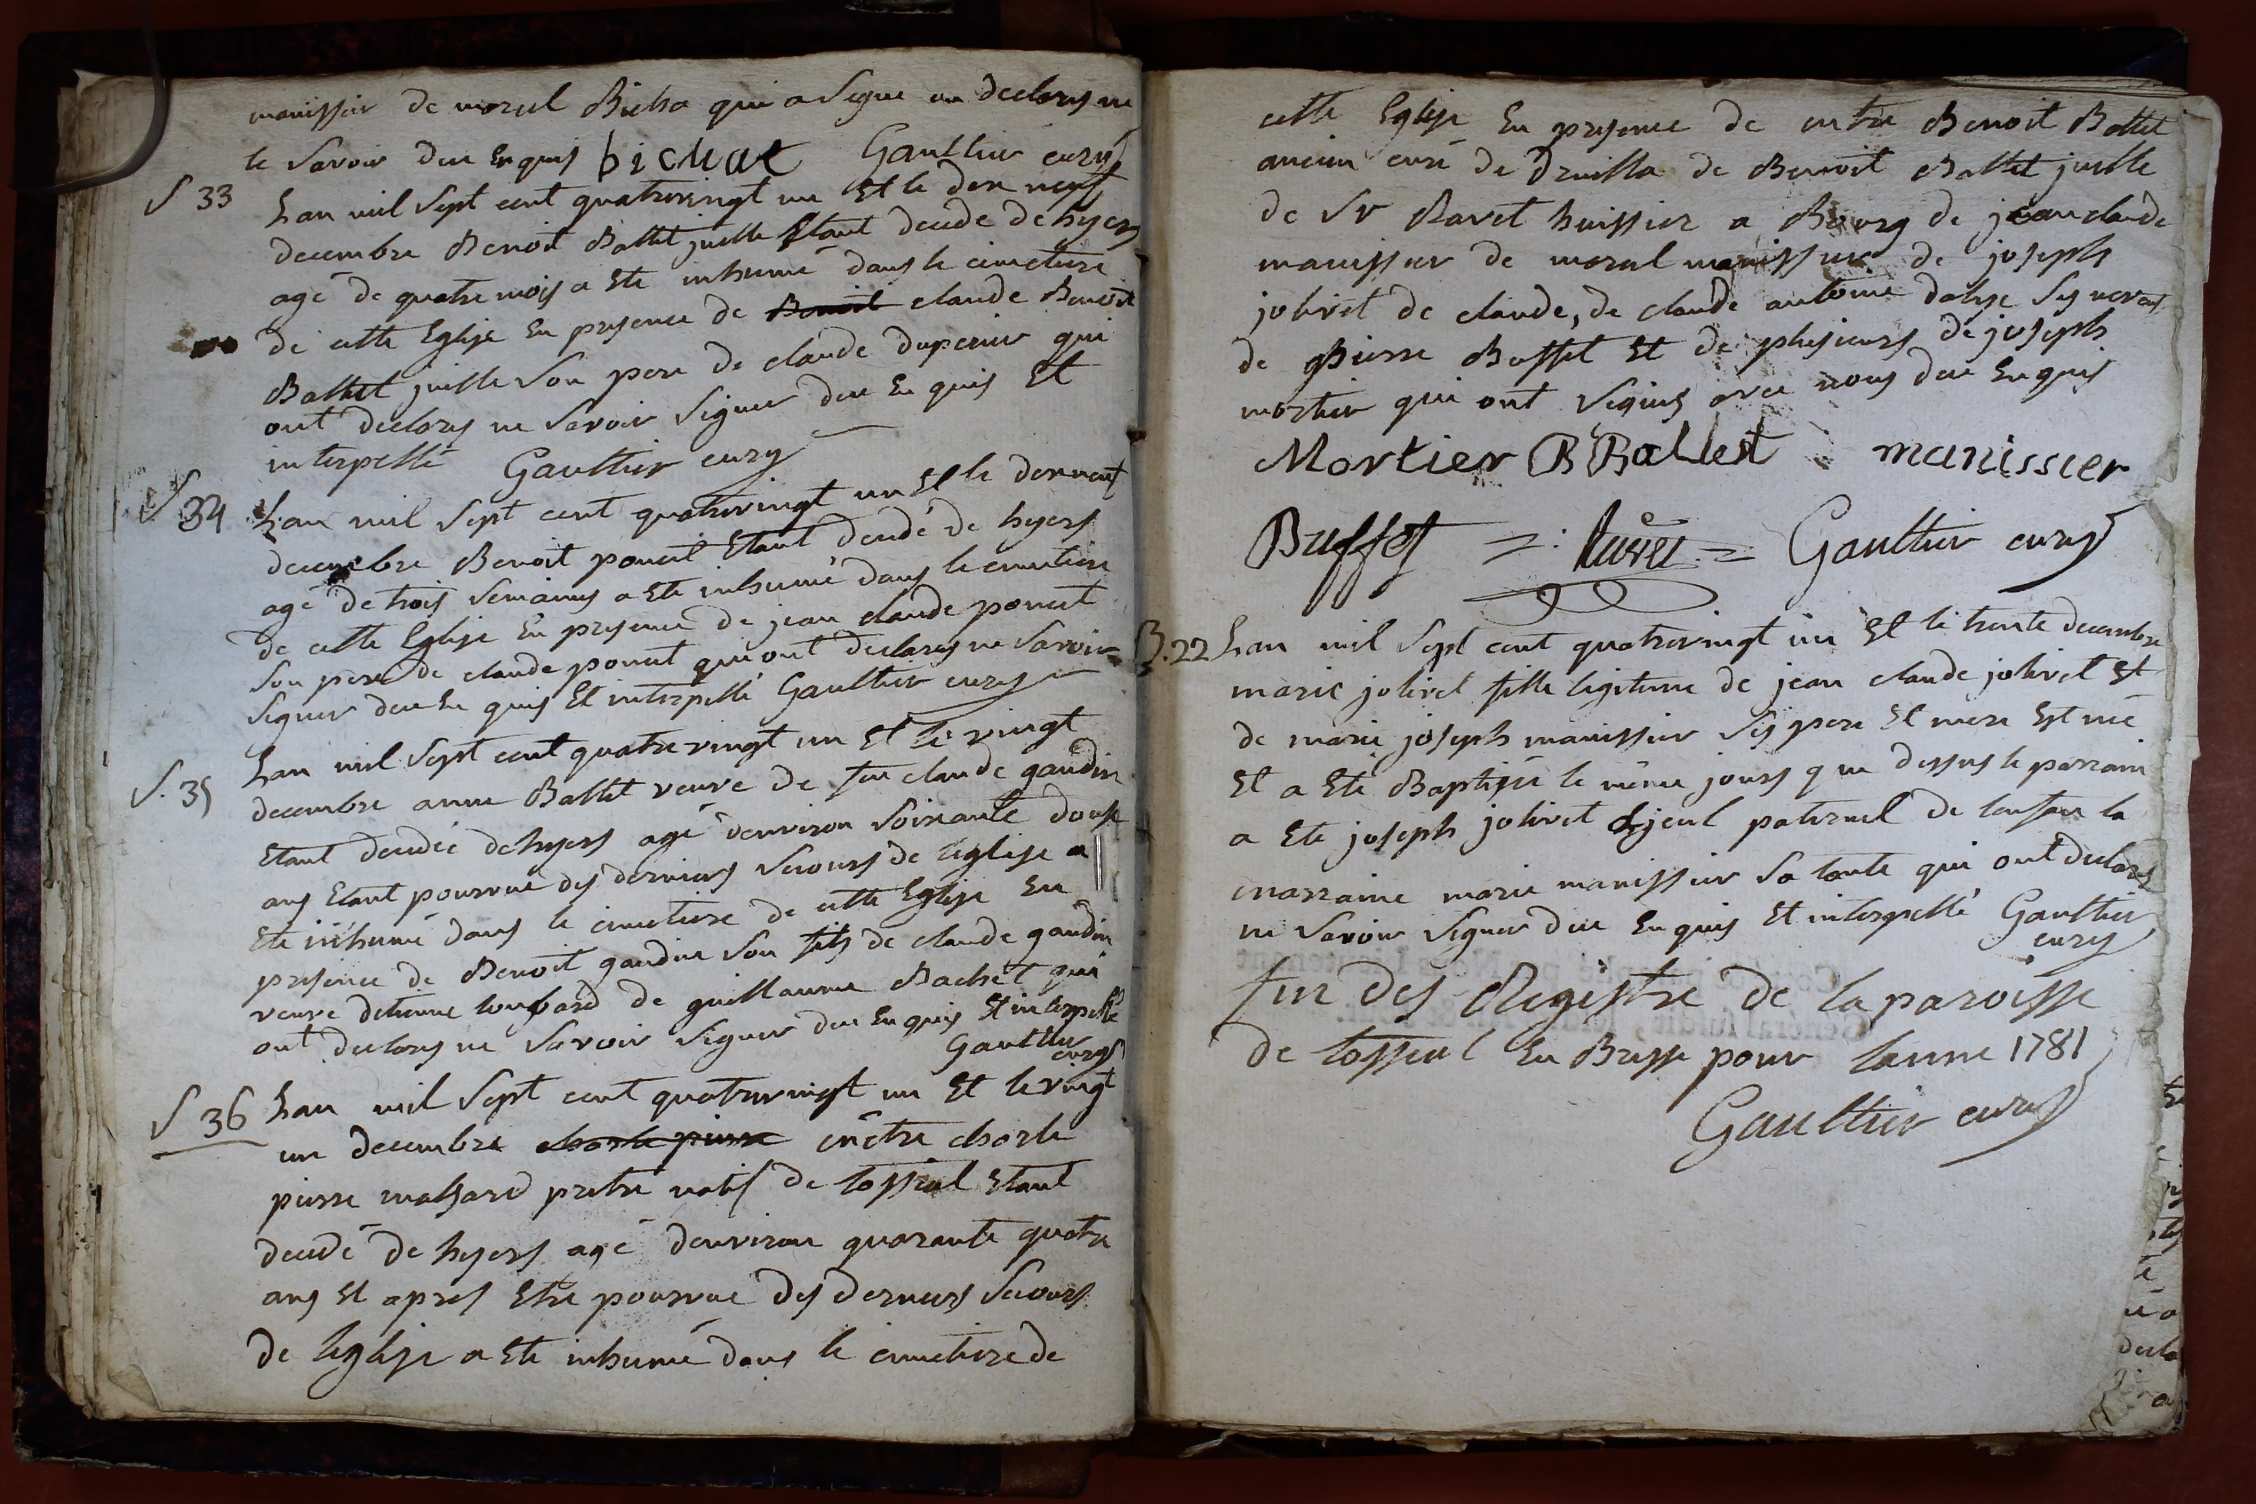 manissier de marcel Bicha qui a signe ou declarés ne
le savoir due enquis bichat Gaulthier curés
S 33 Lan mil sept cent quatrevingt un et le dix neuf
decembre Benoit Ballet juille etant decede dehyers
agé de quatre mois a ete inhumé dans le cimetiere
de cette Eglise En presence de Benoit claude Benoit
Ballet juille son pere de claude duperier qui
ont declarés ne savoir signer due Enquis Et
interpellé Gaulthier curés
S 34 Lan mil sept cent quatrevingt un et le dix neuf
decembre Benoit poncet Etant decedé de hyers
agé de trois semaines a ete inhumé dans le cimetiere
de cette Eglise En presence de jean claude poncet
son pere de claude poncet qui ont declarés ne savoir
signer due En quis Et interpellé Gaulthier curés
S. 35 Lan mil sept cent quatrevingt un et le vingt
decembre anne Ballet veuve de feu claude gaudin
etant decedée dehyers agé denviron soixante douse
ans etant pourvue des derniers secours de leglise a
ete inhumé dans le cimetiere de cette Eglise En
presence de Benoit gaudin son fils de claude gaudin
veuve detienne loubard de guillaume Bachet qui
ont declarés ne savoir signer due Enquis et interpellé
Gaulthier
curés
S 36 Lan mil sept cent quatrevingt un Et le vingt
un decembre charle pierre mêtre charle
pierre mallard prêtre natif de loffial Etant
decedé de hyers agé denviron quarante quatre
ans et apres Etre pourvue des derniers secours
de leglise a ete inhumé dans le cimetiere de
cette Eglise En presence de mtre Benoit Ballet
ancien curé de Druilla de Benoit Ballet juille
de sr Ravet huissier a Bourg de jean claude
manissier de maral manissier de joseph
jolivet de claude, de claude antoine dalise ses neveux
de pierre Buffet Et de plusieurs de joseph
mortier qui ont signés avec nous due Enquis
Mortier B Ballet manissier
Buffet Ravet Gaulthier curés
B. 22 Lan mil sept cent quatrevingt un Et le trente decembre
marie jolivet fille legitime de jean claude jolivet Et
de marie joseph manissier ses pere Et mere Est née
Et a Ete Baptisée le même jours que dessus le parrain
a ete joseph jolivet ayeul paternel de lenfan la
marraine marie manissier sa tante qui ont declarés
ne savoir signer due Enquis Et interpellé Gaulthier
curés
fin des Registre de la paroisse
de loffial En Bresse pour lanne 1781
Gaulthier curés